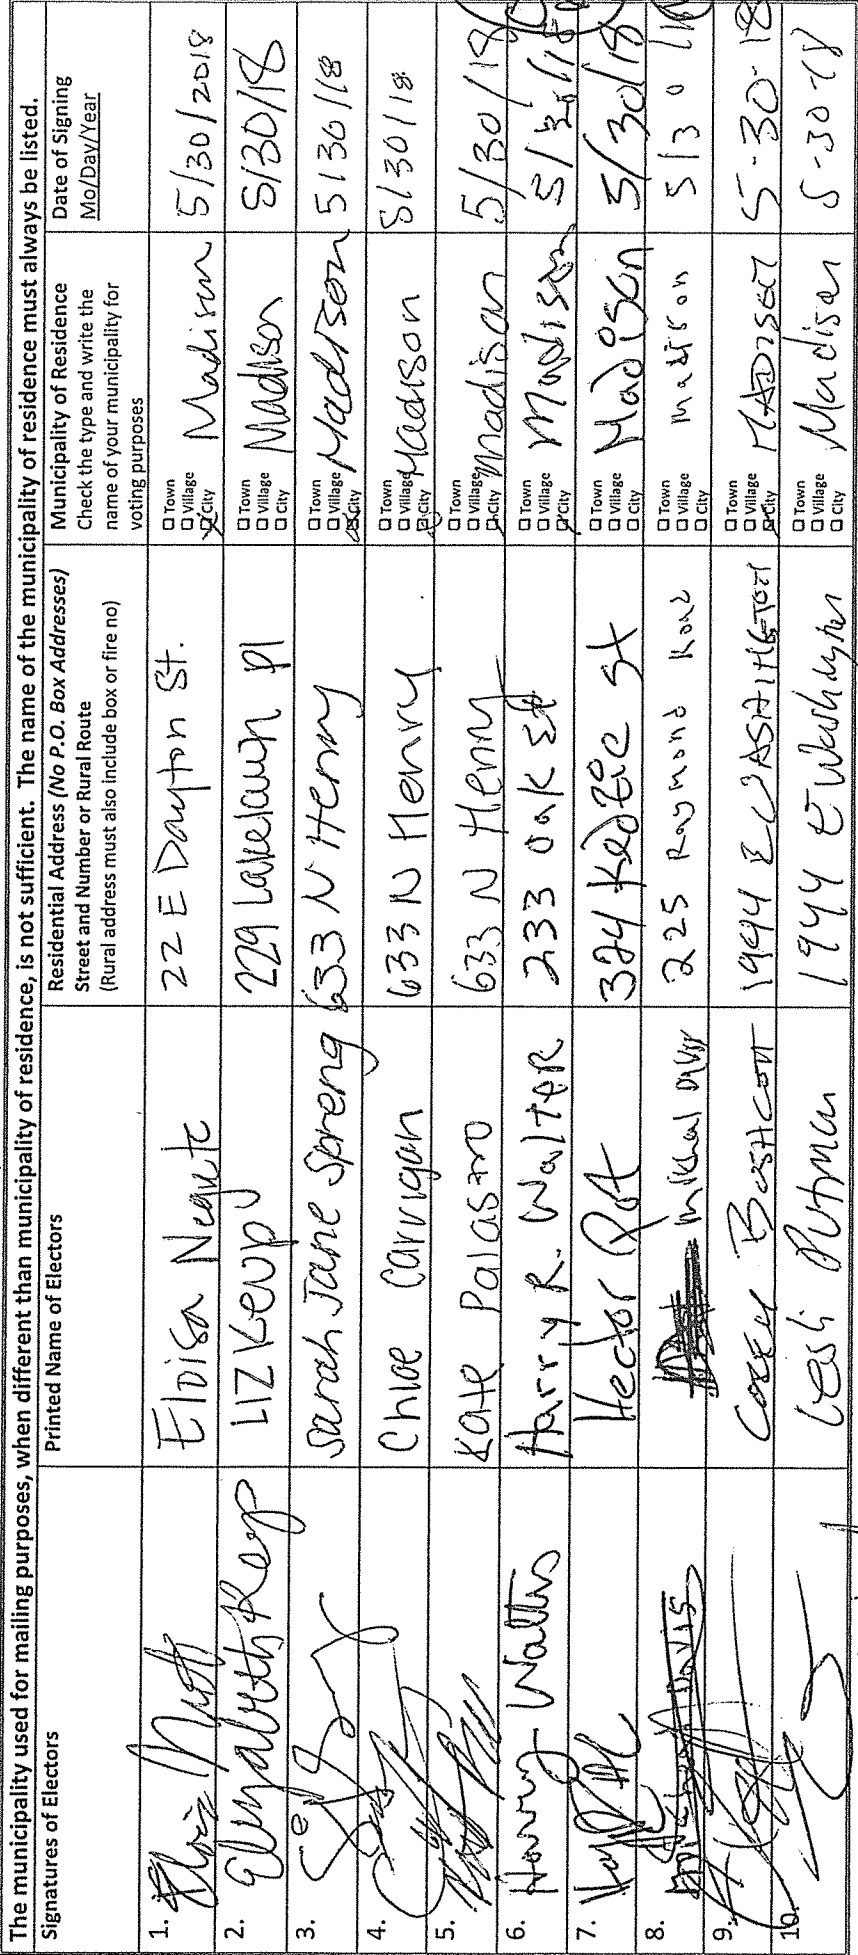 The municipality used for mailing purposes, when different than municipality of residence, is not sufficient. The name of the municipality of residence must always be listed.
Signatures of Electors
Printed Name of Electors
Residential Address (No P.O. Box Addresses)
Street and Number or Rural Route
(Rural address must also include box or fire no)
Municipality of Residence
Check the type and write the
name of your municipality for
voting purposes
Date of Signing
Mo/Day/Year
1. Eloisa Negrete 22 E Dayton St. Town Village City Madison 5/30/2018
2. Elizabeth Keup LIZ Keup 229 Lakelawn Pl Town Village City Madison 5/30/18
3. Sarah Jane Spreng 633 N Henry Town Village City Madison 5/30/18
4. Chloe Carrigan 633 N Henry Town Village City Madison 5/30/18
5. Kate 633 N Henry Town Village City Madison 5/30/18
6. Harry Walter Harry R. Walter 233 Oak St Town Village City Madison 5/30/18
7. Hector 324 Kedzie St Town Village City Madison 5/30/18
8. Davis 225 Raymond Road Town Village City Madison 5/30/18
9. Corey 1944 E WASHINGTON Town Village City MADISON 5-30-18
10. Putman 1944 E Washington Town Village City Madison 5-30-18